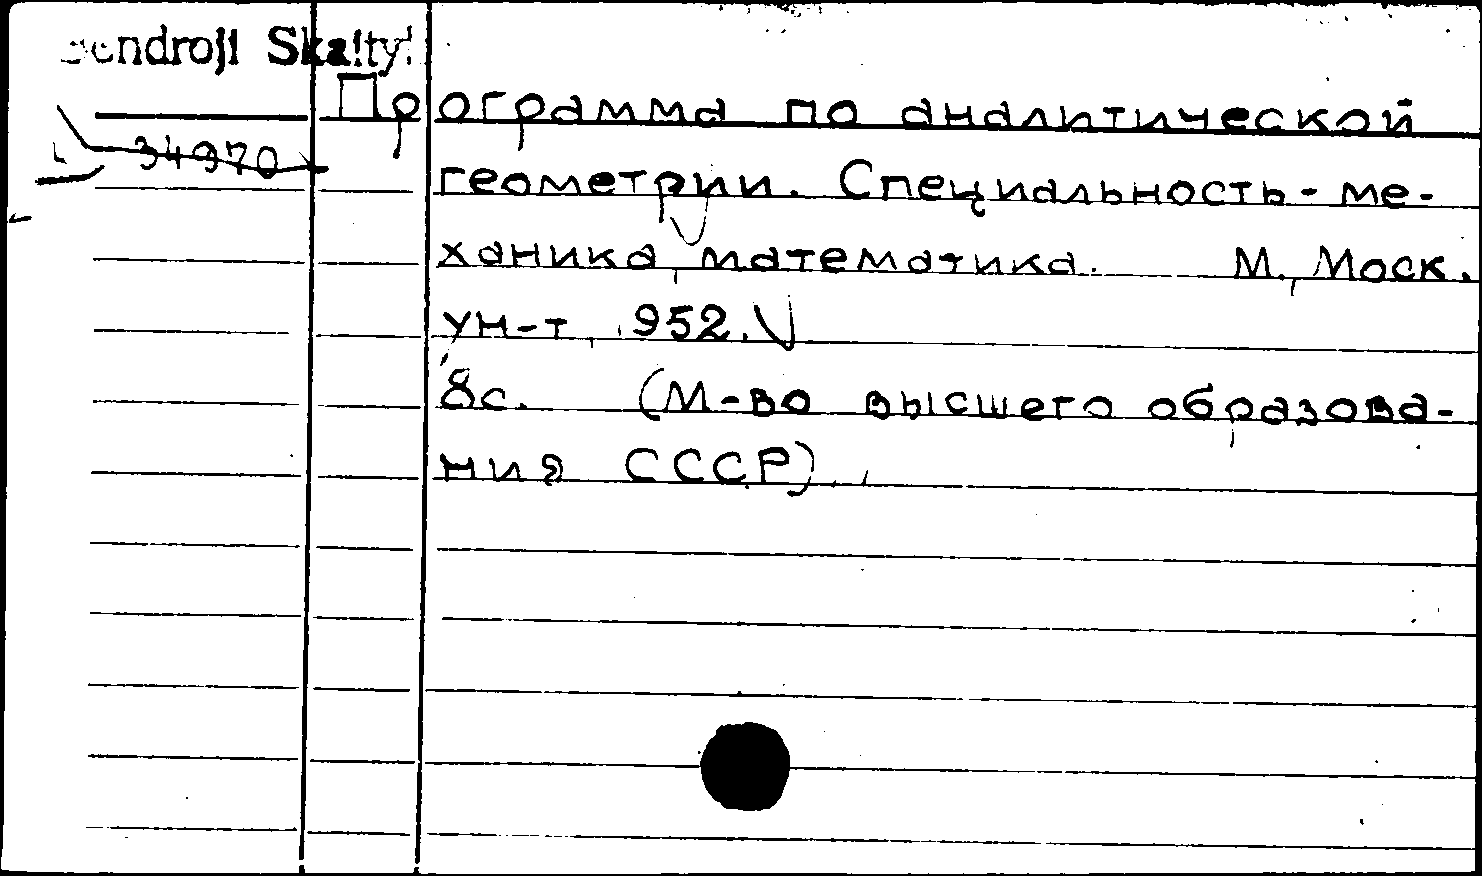 Bendroji Skaityk
Программа по аналитической
34970
геометрии. Специальность - ме-
ханика, математика. М., Моск.
ун-т, 1952.
8с. (М-во высшего образова-
ния СССР).